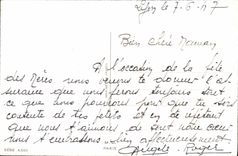 le 7-6-47
Bien Chère Maman
A l'occasion de la fête
des Mères nous venons te donner l'as
surance que nous ferons toujours tout
ce que nous pourrons pour que tu sois
contente de tes petits et en te disant
que nous t'aimons de tout notre cœur
nous t'embrassons bien affectueusement
Roger